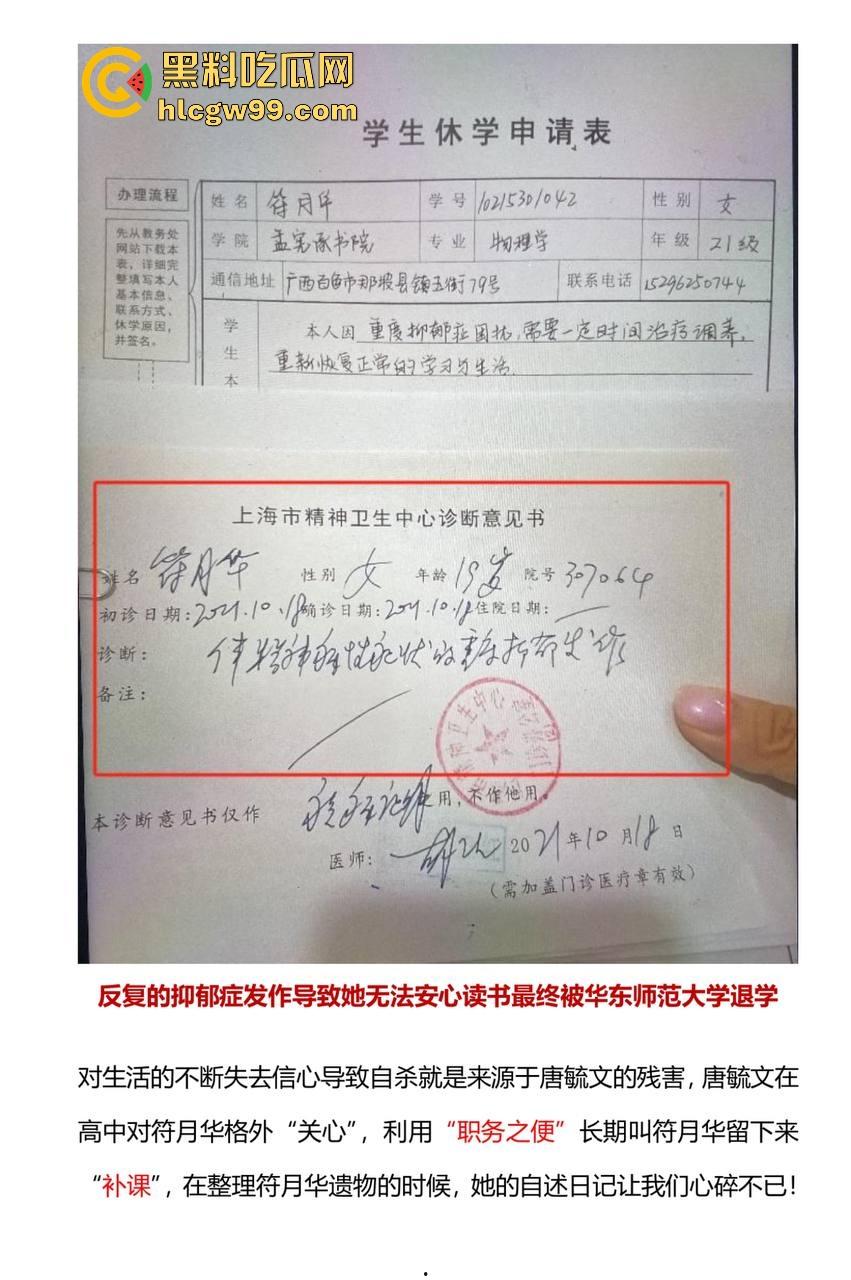 黑料吃瓜网
hlcgw99.com
学生休学申请表
办理流程
先从教务处
网站下载本
表，详细完
整填写本人
基本信息、
联系方式、
休学原因，
并签名。
姓名 符月华 学号 10215301042 性别 女
学院 孟宪承书院 专业 物理学 年级 21级
通信地址 广西百色市那坡县镇玉街79号 联系电话 15296250744
学
生
本
本人因 重度抑郁症困扰，需要一定时间治疗调养，
重新恢复正常的学习与生活.
上海市精神卫生中心诊断意见书
姓名 符月华 性别 女 年龄 19岁 院号 307064
初诊日期：2021.10.18 确诊日期：2021.10.18 住院日期：
诊断： 伴精神病性症状的重度抑郁发作
备注：
本诊断意见书仅作 用，不作他用。
医师： 2021年10月18日
（需加盖门诊医疗章有效）
反复的抑郁症发作导致她无法安心读书最终被华东师范大学退学
对生活的不断失去信心导致自杀就是来源于唐毓文的残害，唐毓文在
高中对符月华格外“关心”，利用“职务之便”长期叫符月华留下来
“补课”，在整理符月华遗物的时候，她的自述日记让我们心碎不已！